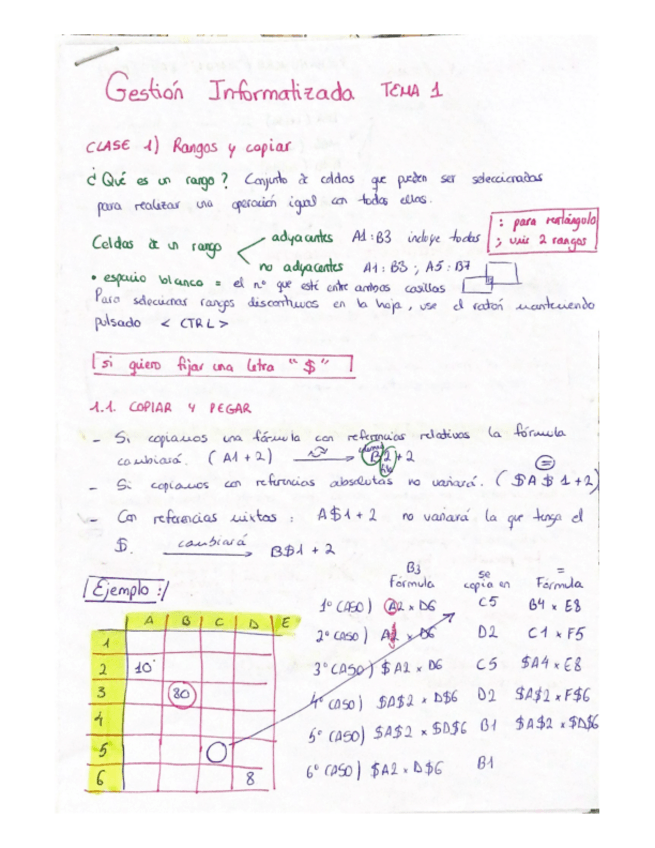 Gestión Informatizada TEMA 1
CLASE 1) Rangos y copiar
¿Qué es un rango? Conjunto de celdas que pueden ser seleccionadas
para realizar una operación igual con todas ellas.
Celdas de un rango
adyacentes A1:B3 incluye todas
no adyacentes A1:B3 ; A5:B7
: para rectángulo
; unir 2 rangos
• espacio blanco = el nº que esté entre ambas casillas
Para seleccionar rangos discontinuos en la hoja, use el ratón manteniendo
pulsado < CTRL >
si quiero fijar una letra "$"
1.1. COPIAR Y PEGAR
- Si copiamos una fórmula con referencias relativas la fórmula
cambiará. (A1+2) → B2+2
columna
fila
- Si copiamos con referencias absolutas no variará. ($A$1+2)
=
- Con referencias mixtas: A$1+2 no variará la que tenga el
$. cambiará → B$1+2
Ejemplo:
B3
Fórmula se copia en = Fórmula
1º CASO) A2 x D6 C5 B4 x E8
2º CASO) A2 x D6 D2 C1 x F5
3º CASO) $A2 x D6 C5 $A4 x E8
4º CASO) $A$2 x D$6 D2 $A$2 x F$6
5º CASO) $A$2 x $D$6 B1 $A$2 x $D$6
6º CASO) $A2 x D$6 B1
A B C D E
1
2 10
3 80
4
5
6 8